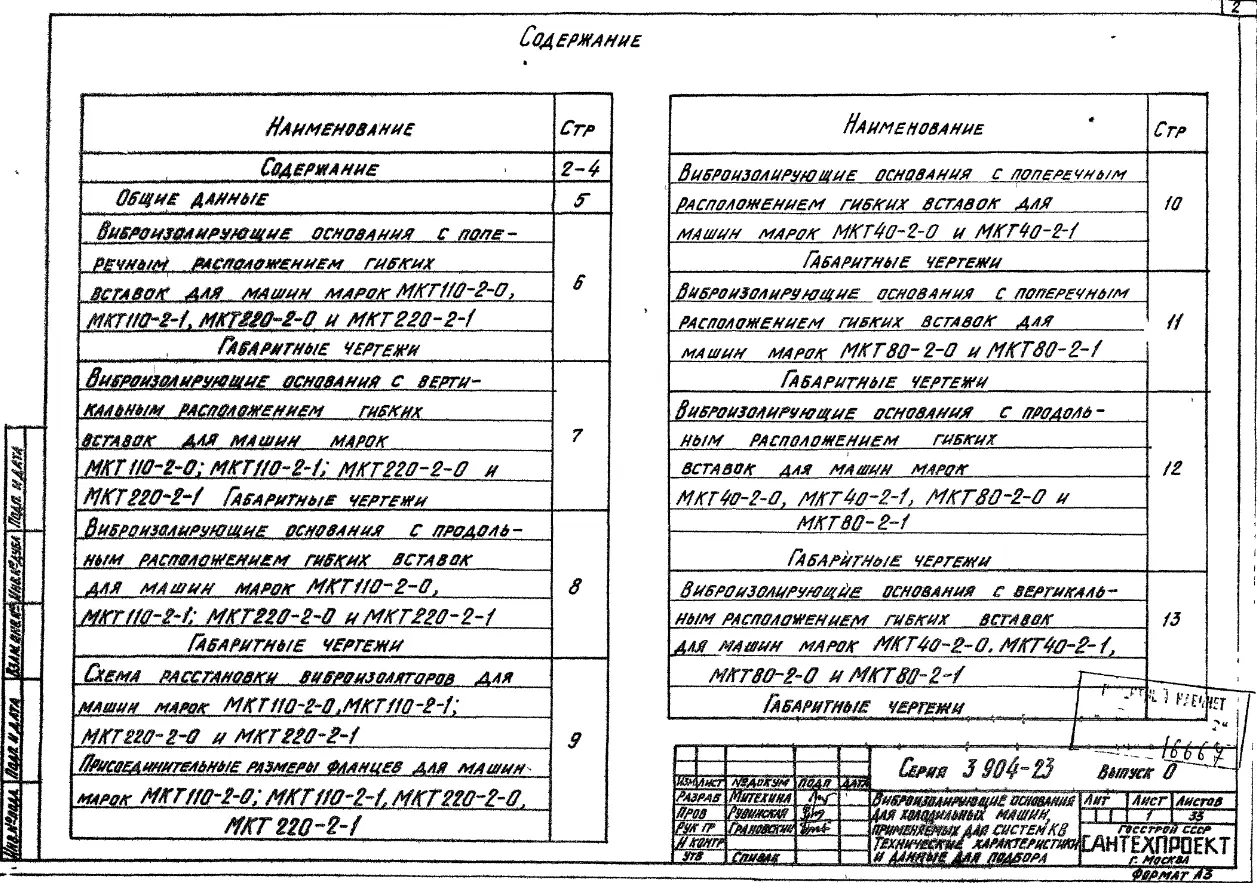 2
Содержание
Наименование Стр
Содержание 2-4
Общие данные 5
Виброизолирующие основания с попе-
речным расположением гибких
вставок для машин марок МКТ110-2-0,
МКТ110-2-1, МКТ220-2-0 и МКТ220-2-1
Габаритные чертежи
6
Виброизолирующие основания с верти-
кальным расположением гибких
вставок для машин марок
МКТ110-2-0; МКТ110-2-1; МКТ220-2-0 и
МКТ220-2-1 Габаритные чертежи
7
Виброизолирующие основания с продоль-
ным расположением гибких вставок
для машин марок МКТ110-2-0,
МКТ110-2-1; МКТ220-2-0 и МКТ220-2-1
Габаритные чертежи
8
Схема расстановки виброизоляторов для
машин марок МКТ110-2-0, МКТ110-2-1;
МКТ220-2-0 и МКТ220-2-1
Присоединительные размеры фланцев для машин
марок МКТ110-2-0; МКТ110-2-1, МКТ220-2-0,
МКТ220-2-1
9
Наименование Стр
Виброизолирующие основания с поперечным
расположением гибких вставок для
машин марок МКТ40-2-0 и МКТ40-2-1
Габаритные чертежи
10
Виброизолирующие основания с поперечным
расположением гибких вставок для
машин марок МКТ80-2-0 и МКТ80-2-1
Габаритные чертежи
11
Виброизолирующие основания с продоль-
ным расположением гибких
вставок для машин марок
МКТ40-2-0, МКТ40-2-1, МКТ80-2-0 и
МКТ80-2-1
Габаритные чертежи
12
Виброизолирующие основания с вертикаль-
ным расположением гибких вставок
для машин марок МКТ40-2-0, МКТ40-2-1,
МКТ80-2-0 и МКТ80-2-1
Габаритные чертежи
13
16667
Серия 3 904-23 Выпуск 0
Изм Лист № докум Подп Дата
Разраб Митехина
Пров Рувинская
Рук гр Грановский
Н контр
Утв Спивак
Виброизолирующие основания
для холодильных машин,
применяемых для систем КВ
Технические характеристики
и данные для подбора
Лит Лист Листов
1 33
Госстрой СССР
САНТЕХПРОЕКТ
г. Москва
Формат А3
Инв.№ подл. Подп. и дата Взам.инв.№ Инв.№ дубл Подп. и дата